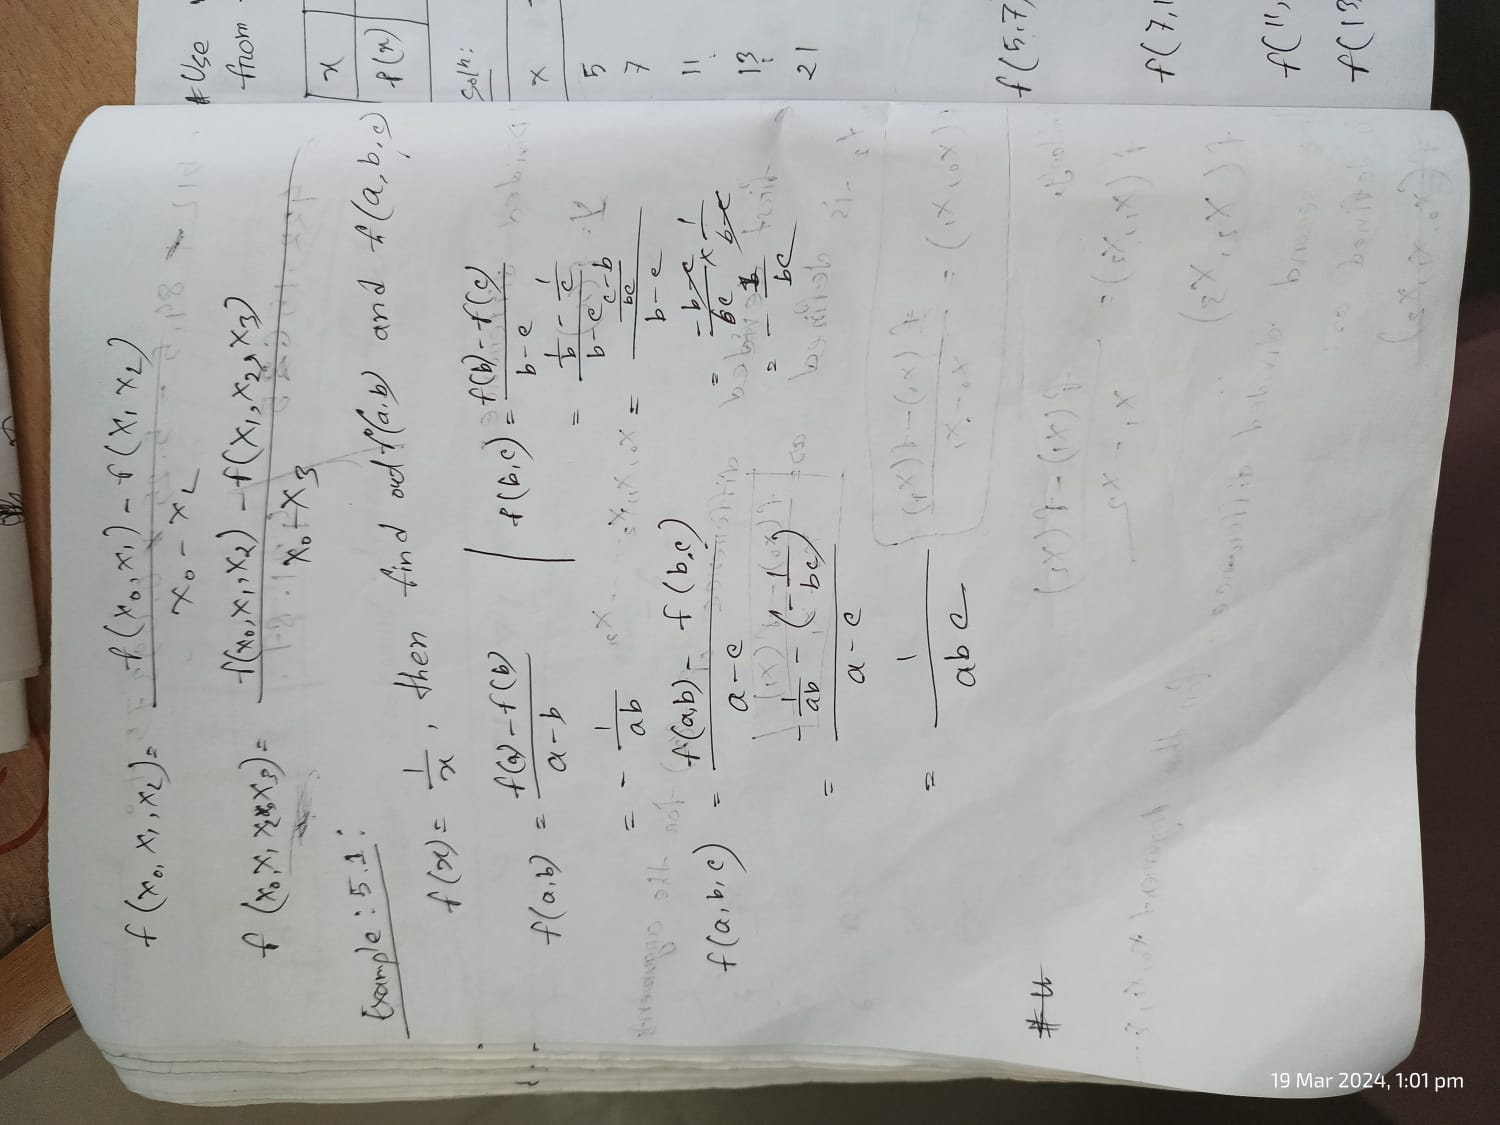 f(x₀, x₁, x₂) = f(x₀, x₁) - f(x₁, x₂) / x₀ - x₂
f(x₀, x₁, x₂, x₃) = f(x₀, x₁, x₂) - f(x₁, x₂, x₃) / x₀ - x₃
Example: 5.1:
f(x) = 1/x, then find out f(a,b) and f(a, b, c)
f(a,b) = f(a) - f(b) / a - b
= - 1/ab
f(b,c) = f(b) - f(c) / b - c
= 1/b - 1/c / b - c
= c - b / bc / b - c
= - b - c / bc × 1 / b - c
= - 1 / bc
f(a, b, c) = f(a,b) - f(b,c) / a - c
= - 1/ab - (- 1/bc) / a - c
= 1 / abc
#Use
from
x
f(x)
Soln:
x
5
7
11
13
21
f(5,7)
f(7,1
f(11,
f(13,
19 Mar 2024, 1:01 pm